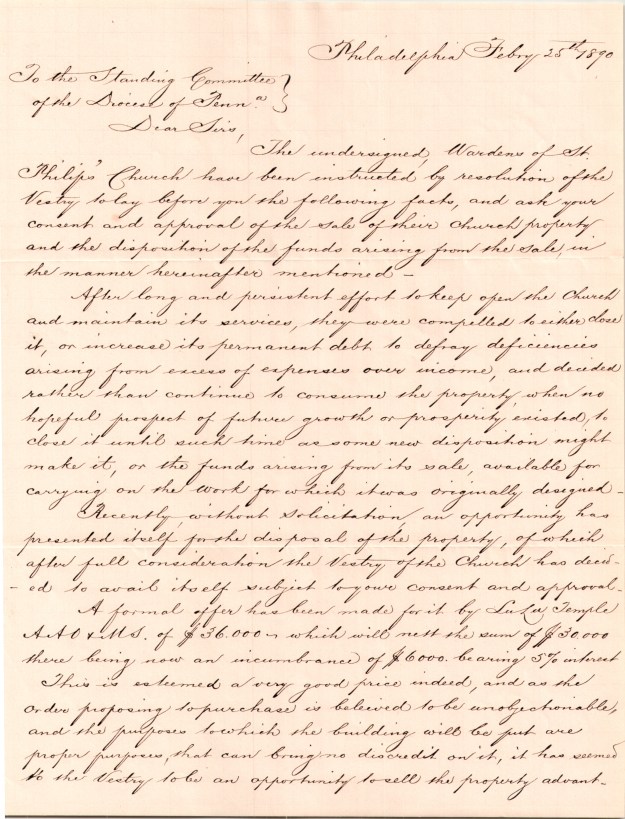 Philadelphia Febry 25th 1890
To the Standing Committee
of the Diocese of Penn.a
Dear Sirs,
The undersigned, Wardens of St.
Philip's Church have been instructed by resolution of the
Vestry to lay before you the following facts, and ask your
consent and approval of the sale of their church property
and the disposition of the funds arising from the sale, in
the manner hereinafter mentioned –
After long and persistent effort to keep open the Church
and maintain its services, they were compelled to either close
it, or increase its permanent debt to defray deficiencies
arising from excess of expenses over income, and decided
rather than continue to consume the property, when no
hopeful prospect of future growth or prosperity existed, to
close it until such time as some new disposition might
make it, or the funds arising from its sale, available for
carrying on the work for which it was originally designed –
Recently, without solicitation, an opportunity has
presented itself for the disposal of the property, of which
after full consideration the Vestry of the Church has decid-
-ed to avail itself subject to your consent and approval.
A formal offer has been made for it by LuLu Temple
A.A.O & M.S. of $36.000 – which will nett the sum of $30.000
there being now an incumbrance of $6000. bearing 5% interest
This is esteemed a very good price indeed, and as the
Order proposing to purchase is beleived to be unobjectionable,
and the purposes to which the building will be put are
proper purposes, that can bring no discredit on it, it has seemed
to the Vestry to be an opportunity to sell the property advant-